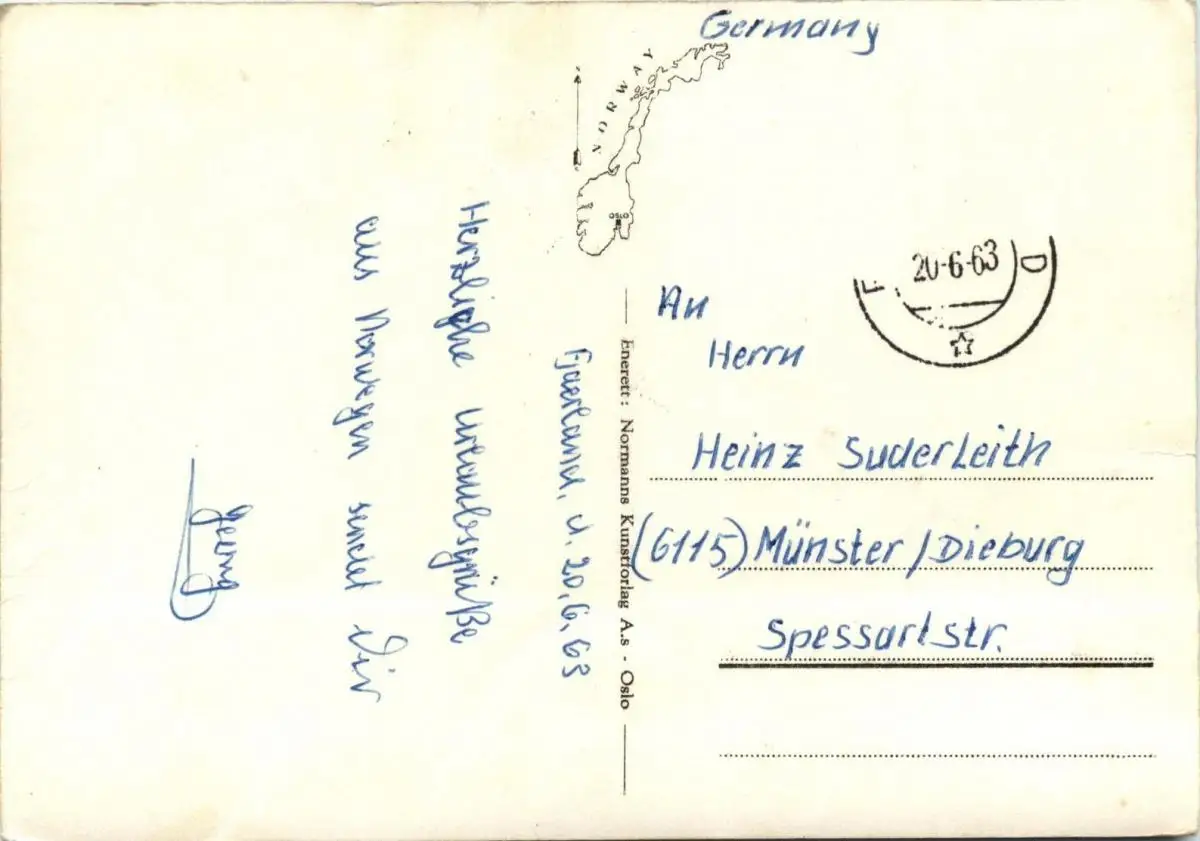 Germany
NORWAY
OSLO
20-6-63
F
D
An
Herrn
Heinz Suderleith
(6115) Münster/Dieburg
Spessartstr.
Enerett: Normanns Kunstforlag A.s - Oslo
Fjaerland, d. 20.6.63
Herzliche Urlaubsgrüße
aus Norwegen sendet Dir
Georg